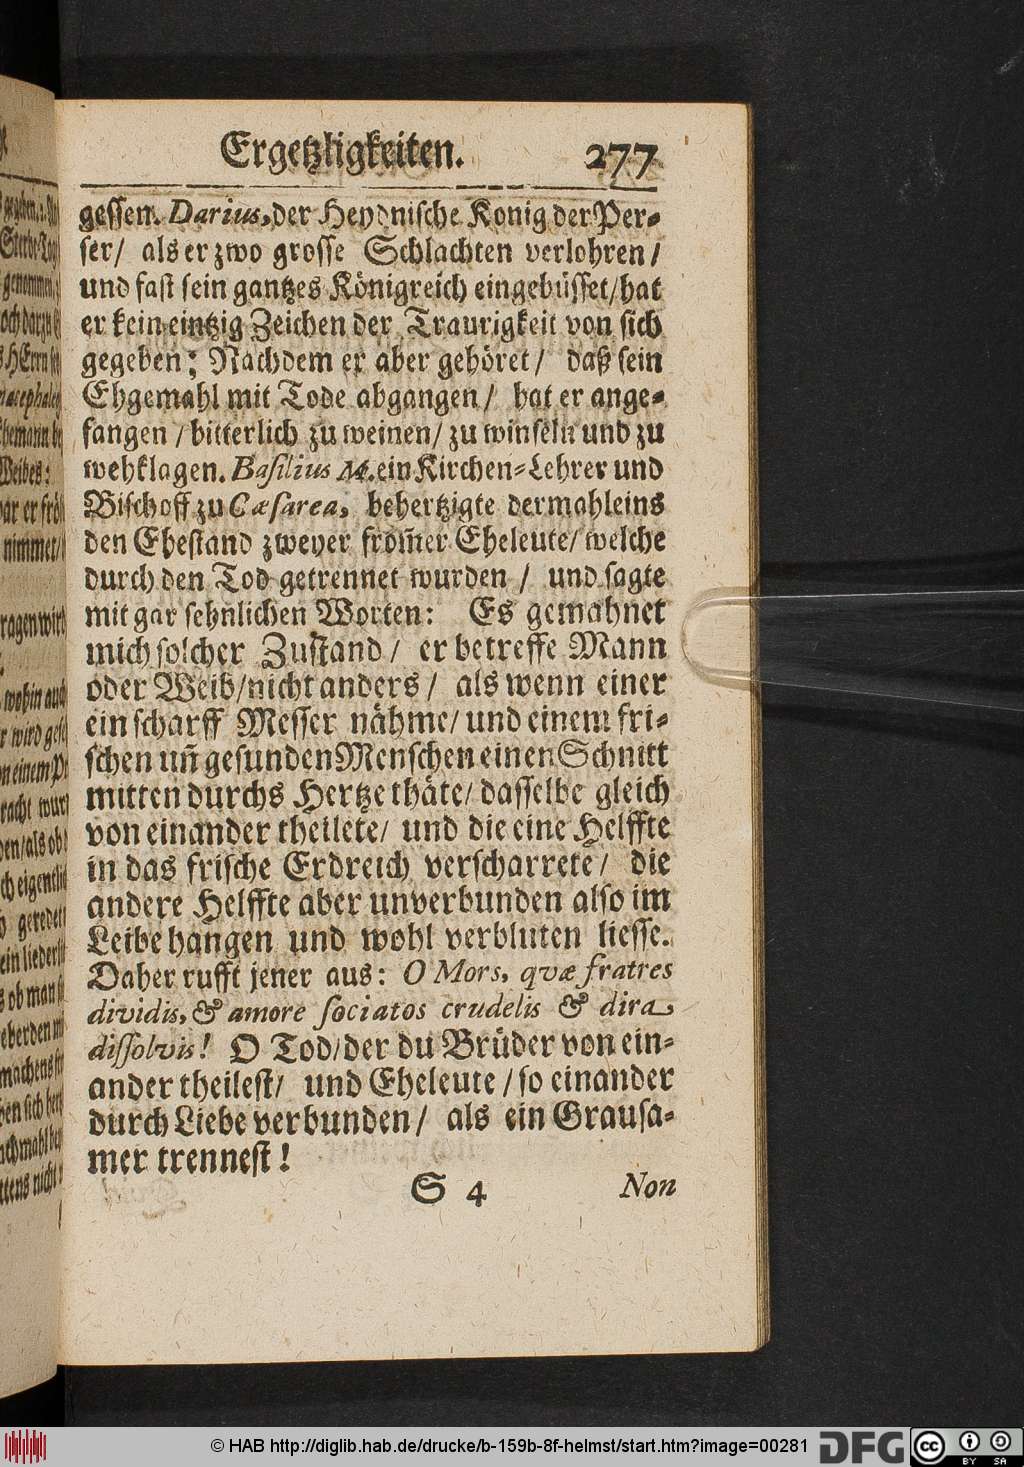 Ergetzligkeiten. 277
gessen. Darius, der Heydnische Konig der Per-
ser/ als er zwo grosse Schlachten verlohren/
und fast sein gantzes Königreich eingebüsset/hat
er kein eintzig Zeichen der Traurigkeit von sich
gegeben; Nachdem er aber gehöret/ daß sein
Ehgemahl mit Tode abgangen/ hat er ange-
fangen/bitterlich zu weinen/ zu winseln und zu
wehklagen. Basilius M. ein Kirchen-Lehrer und
Bischoff zu Cæsarea, behertzigte dermahleins
den Ehestand zweyer from̃er Eheleute/ welche
durch den Tod getrennet wurden/ und sagte
mit gar sehnlichen Worten: Es gemahnet
mich solcher Zustand/ er betreffe Mann
oder Weib/nicht anders/ als wenn einer
ein scharff Messer nähme/ und einem fri-
schen un̄ gesunden Menschen einen Schnitt
mitten durchs Hertze thäte/ dasselbe gleich
von einander theilete/ und die eine Helffte
in das frische Erdreich verscharrete/ die
andere Helffte aber unverbunden also im
Leibe hangen und wohl verbluten liesse.
Daher rufft jener aus: O Mors, qvæ fratres
dividis, & amore sociatos crudelis & dira
dissolvis! O Tod/der du Brüder von ein-
ander theilest/ und Eheleute/so einander
durch Liebe verbunden/ als ein Grausa-
mer trennest!
S 4 Non
© HAB http://diglib.hab.de/drucke/b-159b-8f-helmst/start.htm?image=00281 DFG cc BY SA